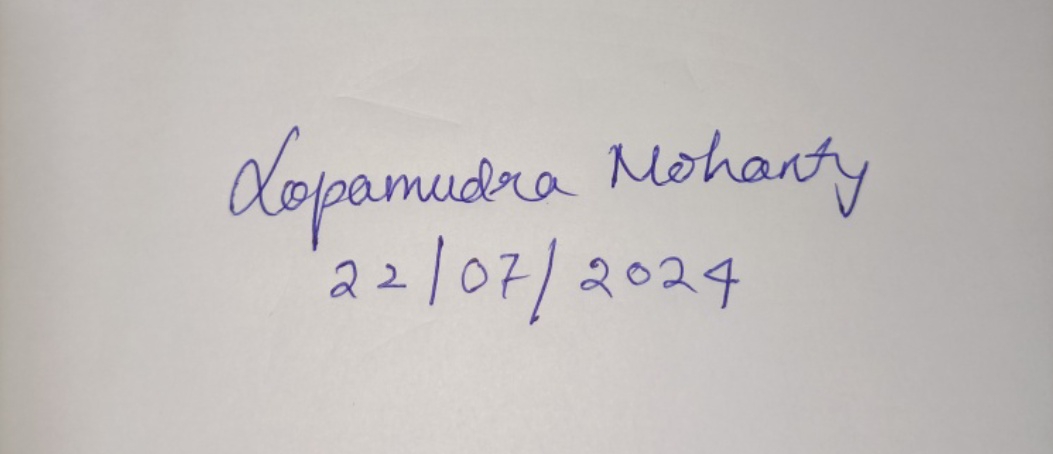 Lopamudra Mohanty
22/07/2024